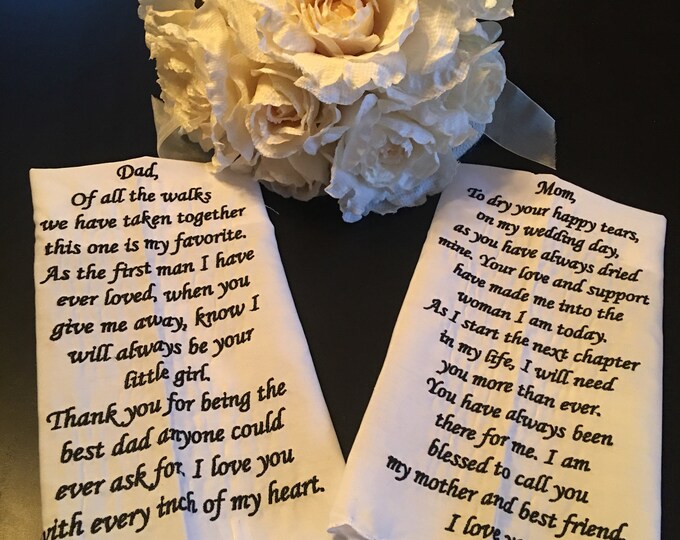 Dad,
Of all the walks
we have taken together
this one is my favorite.
As the first man I have
ever loved, when you
give me away, know I
will always be your
little girl.
Thank you for being the
best dad anyone could
ever ask for. I love you
with every inch of my heart.
Mom,
To dry your happy tears,
on my wedding day,
as you have always dried
mine. Your love and support
have made me into the
woman I am today.
As I start the next chapter
in my life, I will need
you more than ever.
You have always been
there for me. I am
blessed to call you
my mother and best friend
I love